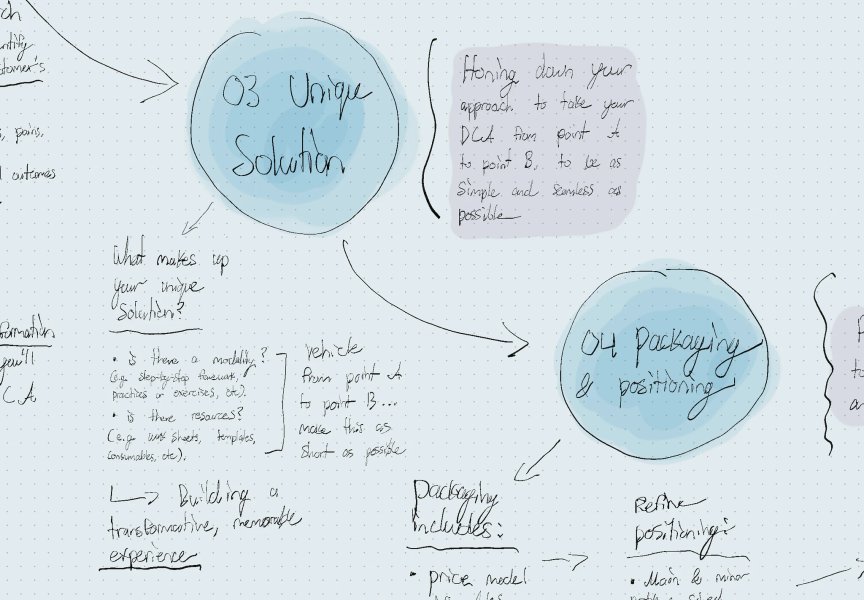 ch
ntify
stomer's
s, pains,
d outcomes
formation
you'll
CA
03 Unique
Solution
Honing down your
approach to take your
DCA from point A
to point B, to be as
simple and seamless as
possible
What makes up
your unique
Solution?
• is there a modality?
(e.g. step-by-step framework,
practices or exercises, etc).
• is there resources?
(e.g. work sheets, templates,
consumables, etc).
vehicle
from point A
to point B...
make this as
short as possible
Building a
transformative, memorable
experience
04 Packaging
& positioning
P
to
an
Packaging
includes:
• price model
Refine
positioning:
• Main & minor